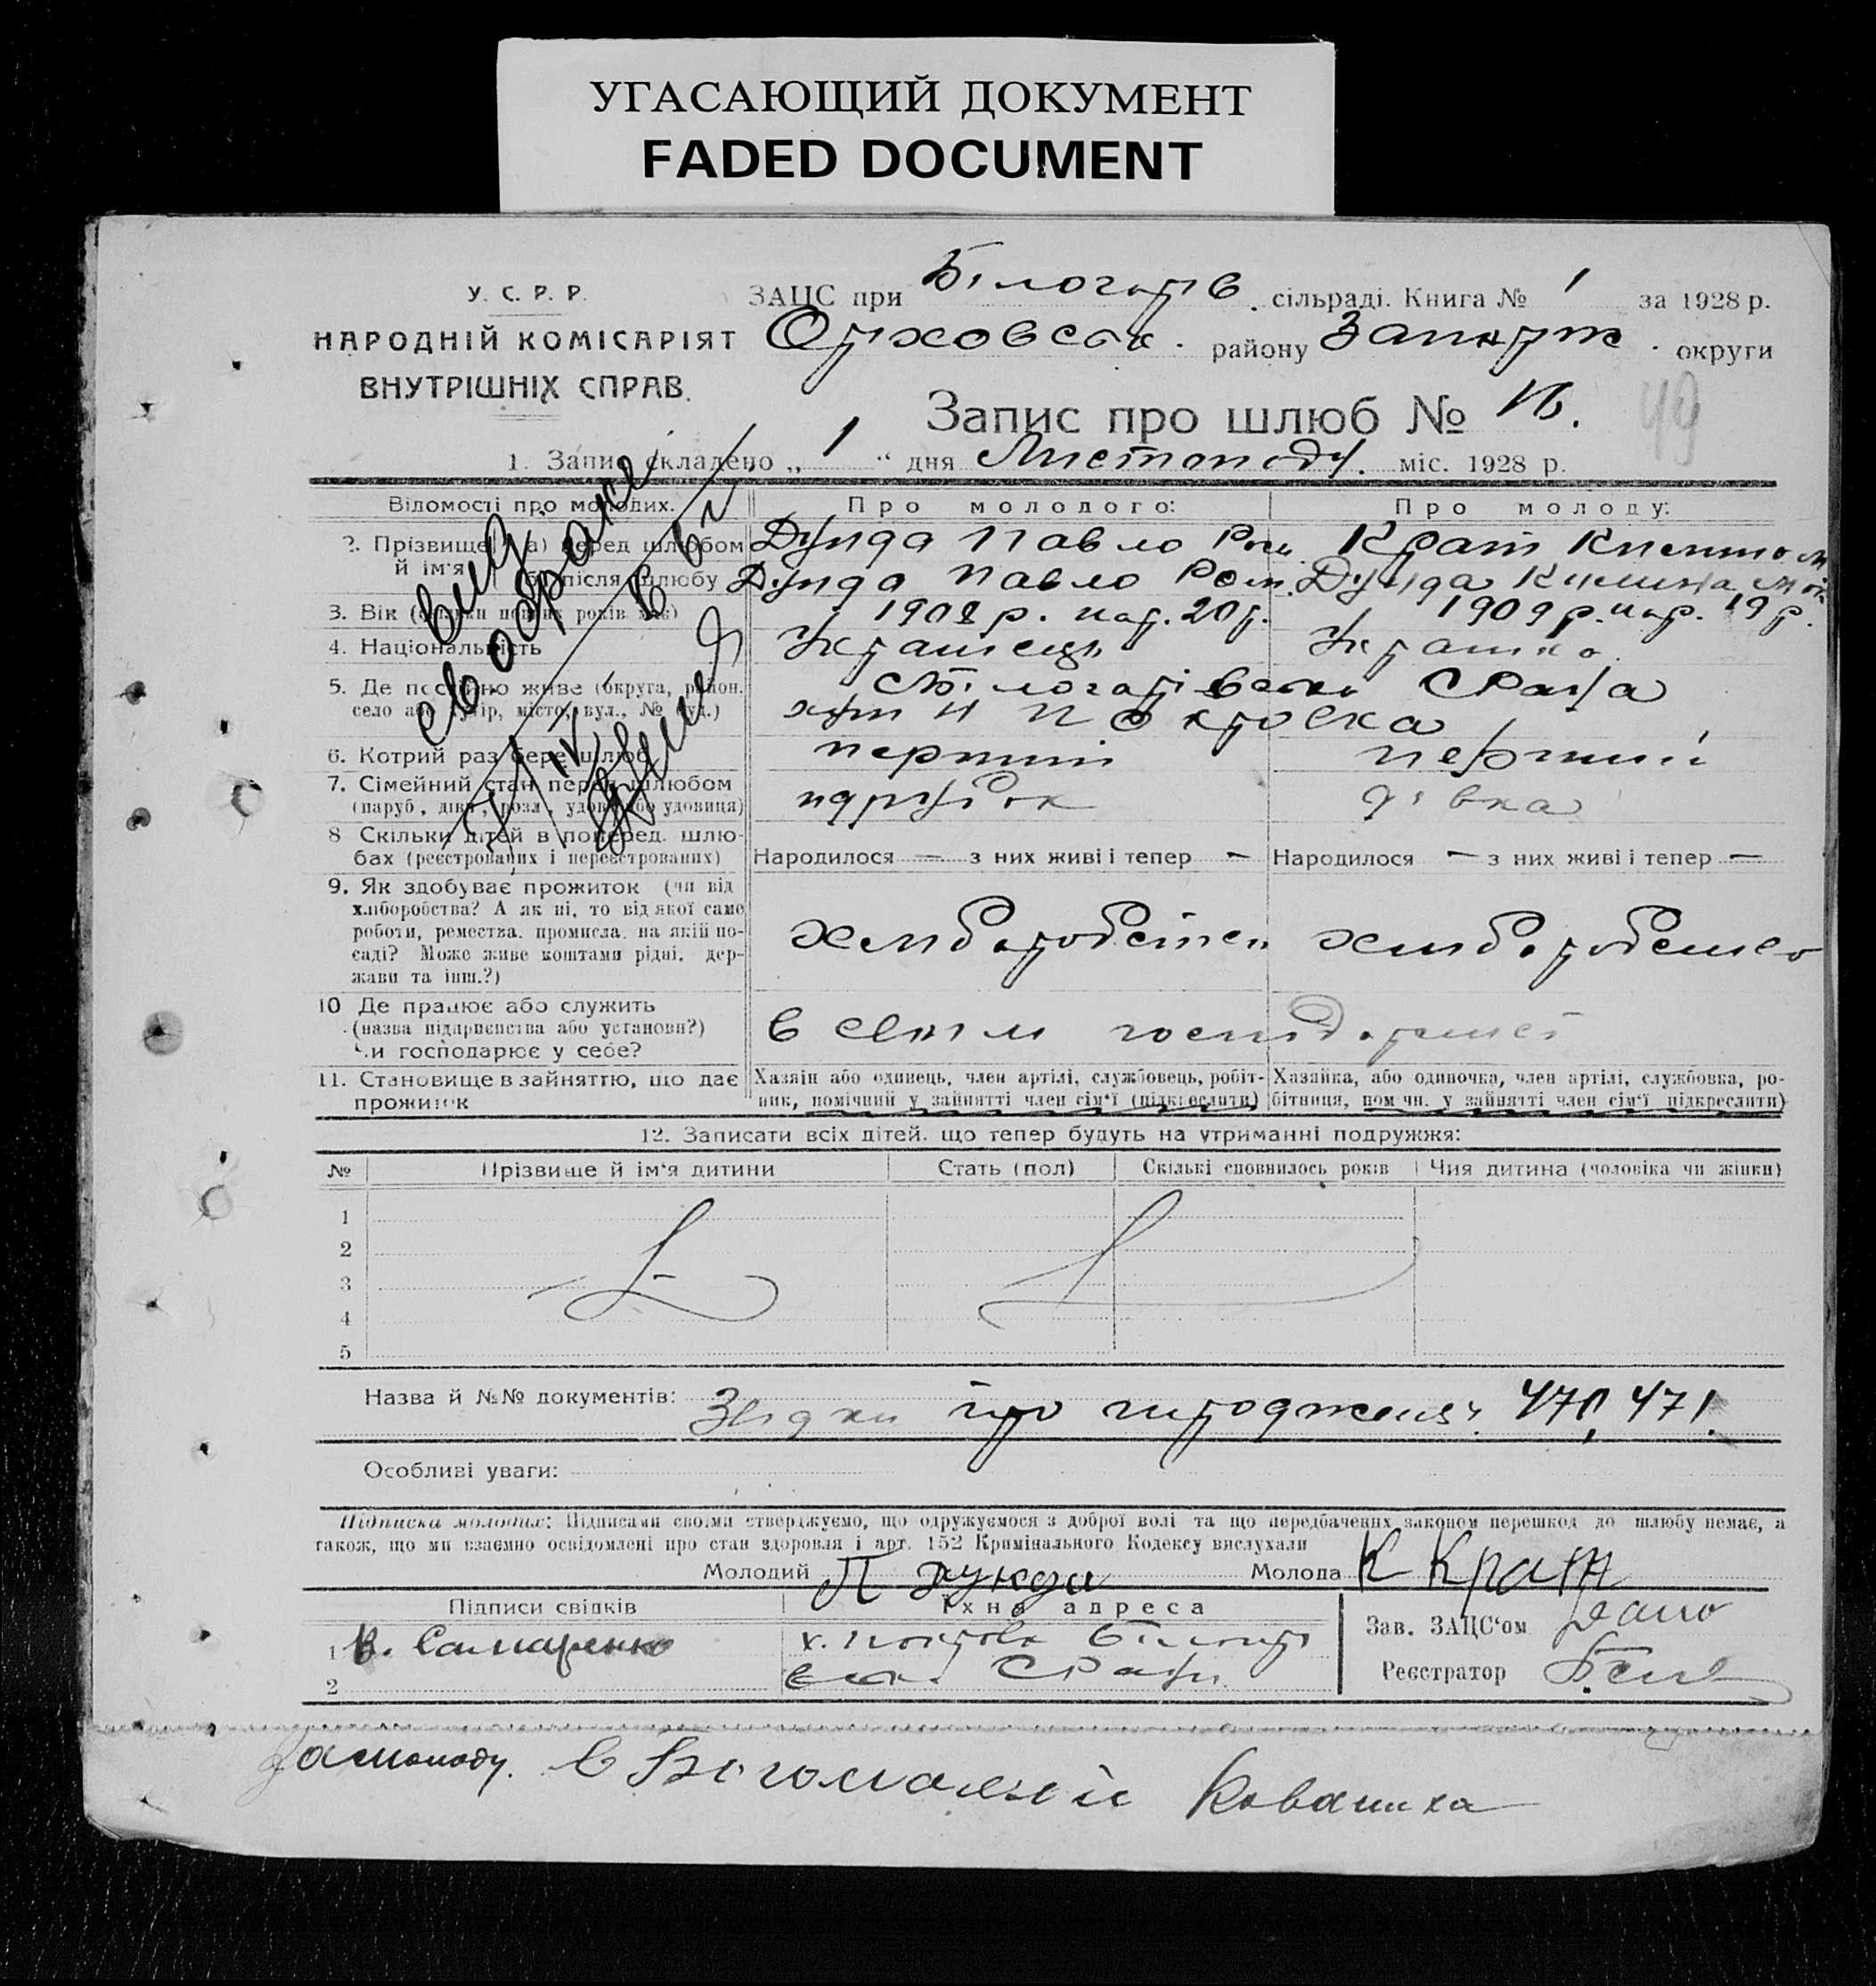 УГАСАЮЩИЙ ДОКУМЕНТ
FADED DOCUMENT
У. С. Р. Р.
НАРОДНІЙ КОМІСАРІЯТ
ВНУТРІШНІХ СПРАВ.
ЗАЦС при Білогорів. сільраді. Книга № 1 за 1928 р.
Оріховськ. району Запоріж. округи
Запис про шлюб №
49
1. Запис складено „ 1 “ дня Листопаду. міс. 1928 р.
Відомості про молодих.
Про молодого:
Про молоду:
2. Прізвище й ім'я
а) перед шлюбом
Дунда Павло Ром.
Крат Килина М
б) після шлюбу
Дунда Павло Ром.
Дунда Килина М
3. Вік (скільки повних років має)
1908 р. нар. 20 р.
1909 р. нар. 19 р.
4. Національність
Українець
Українка
5. Де постійно живе (округа, район.
село або хутір, місто, вул., № буд.)
Білогорівська СРада
хут Н Покровка
6. Котрий раз бере шлюб
перший
перший
7. Сімейний стан перед шлюбом
(паруб., дівч., розл., удов. або удовиця)
парубок
дівка
8 Скільки дітей в поперед. шлю-
бах (реєстрованих і нереєстрованих)
Народилося — з них живі і тепер —
Народилося — з них живі і тепер —
9. Як здобуває прожиток (чи від
хліборобства? А як ні, то від якої саме
роботи, ремества, промисла, на якій по-
саді? Може живе коштами рідні, дер-
жави та інш.?)
хліборобство
хліборобство
10 Де працює або служить
(назва підприємства або установи?)
Чи господарює у себе?
в своїм господарстві
11. Становище в зайняттю, що дає
прожиток
Хазяїн або одинець, член артілі, службовець, робіт-
ник, помічний у зайнятті член сім'ї (підкреслити)
Хазяйка, або одиночка, член артілі, службовка, ро-
бітниця, помічн. у зайнятті член сім'ї підкреслити)
свид
о браке
12. Записати всіх дітей, що тепер будуть на утриманні подружжя:
№
Прізвище й ім'я дитини
Стать (пол)
Скількі сповнилось років
Чия дитина (чоловіка чи жінки)
1
2
3
4
5
Назва й №№ документів: про народження 470, 471.
Особливі уваги:
Підписка молодих: Підписами своїми стверджуємо, що одружуємося з доброї волі та що передбачених законом перешкод до шлюбу немає, а
також, що ми взаємно освідомлені про стан здоровля і арт. 152 Кримінального Кодексу вислухали
Молодий П Дунда
Молода К Крат
Підписи свідків
Їхня адреса
Зав. ЗАЦС'ом
1 В. Самаренко
х. Покровка Білогорі
вськ. СРади
2
Реєстратор